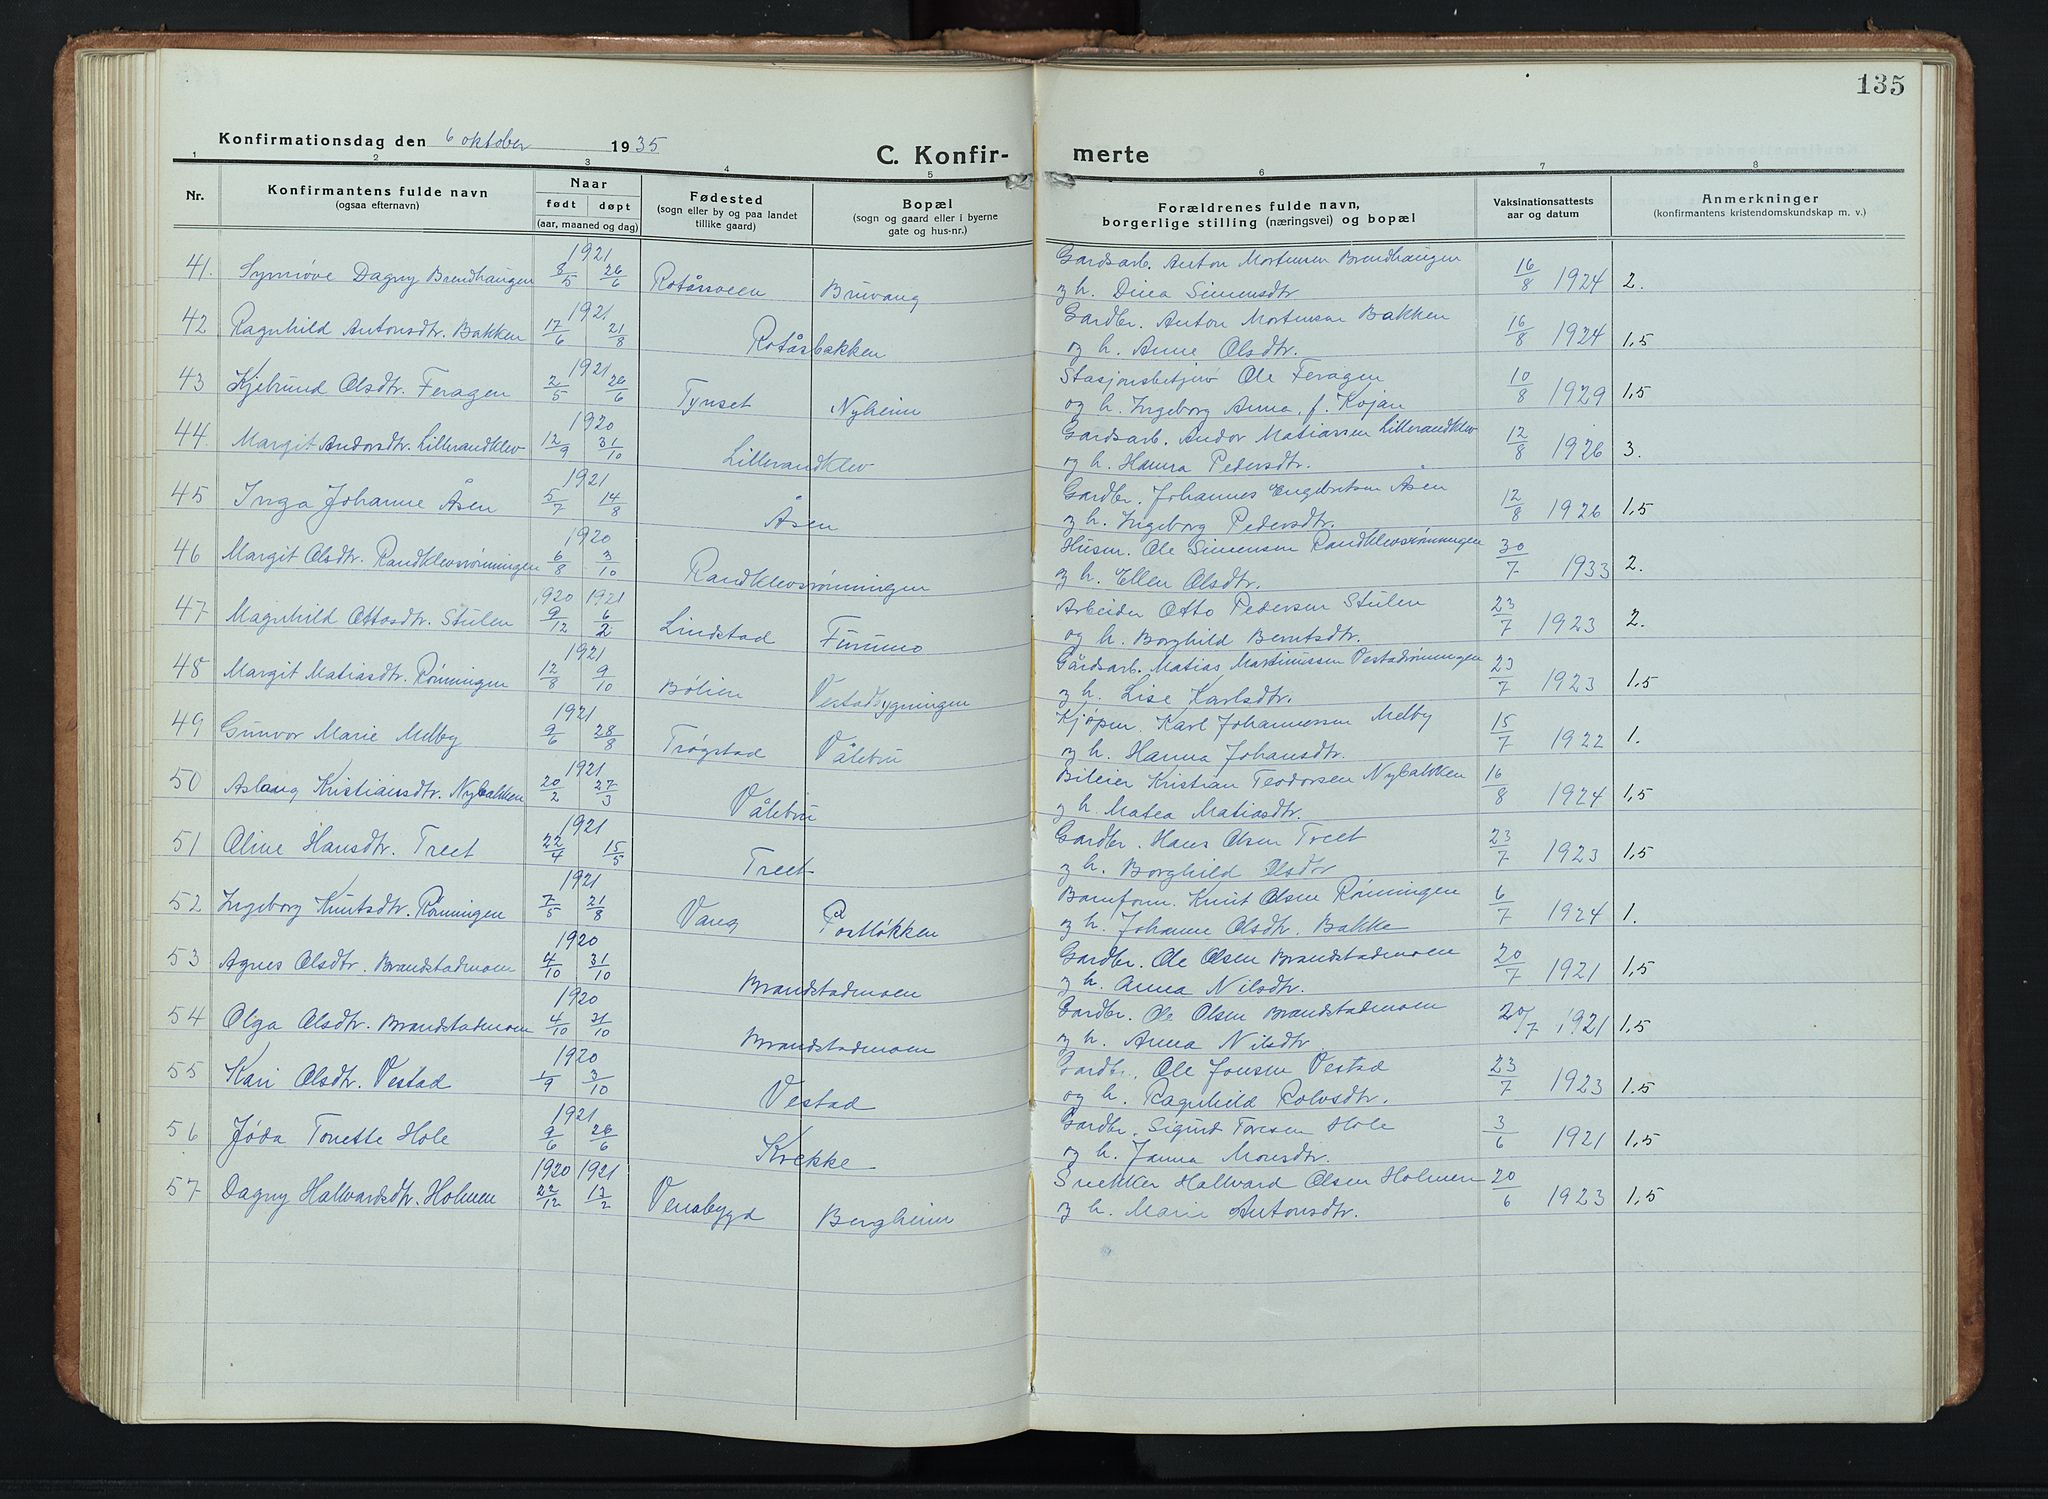 135
Konfirmationsdag den 6 oktober 1935
C. Konfir- merte
1 2 3 4 5 6 7 8
Nr.
Konfirmantens fulde navn
(ogsaa efternavn)
Naar
født døpt
(aar, maaned og dag)
Fødested
(sogn eller by og paa landet
tillike gaard)
Bopæl
(sogn og gaard eller i byerne
gate og hus-nr.)
Forældrenes fulde navn,
borgerlige stilling (næringsvei) og bopæl
Vaksinationsattests
aar og datum
Anmerkninger
(konfirmantens kristendomskundskap m. v.)
1921 Gardsarb. Anton Mortensen Brendhaugen
41. Synnøve Dagny Brendhaugen 8/5 26/6 Rotåsveen Bruvang og h. Dina Simensdtr 16/8 1924 2.
1921 Gardbr. Anton Mortensen Bakken
42 Ragnhild Antonsdtr. Bakken 17/6 21/8 Rotåsbakken og h. Anne Olsdtr. 16/8 1924 1,5
1921 Stasjonsbetjen Ole Feragen
43 Kjellrund Olsdtr. Feragen 2/5 26/6 Tynset Nyheim og h. Ingeborg Anna, f. Kojan 10/8 1929 1,5
1920 Gardsarb. Andor Matiassen Lillerandklev
44. Margit Andorsdtr. Lillerandklev 12/9 31/10 Lillerandklev og h. Hanna Pedersdtr. 12/8 1926 3.
1921 Gardbr. Johannes Engebretsen Åsen
45 Inga Johanne Åsen 5/7 14/8 Åsen og h. Ingeborg Pedersdtr. 12/8 1926 1,5
1920 Husm. Ole Simensen Randklevsrønningen
46 Margit Olsdtr. Randklevsrønningen 6/8 3/10 Randklevsrønningen og h. Ellen Olsdtr. 30/7 1933 2.
1920 1921 Arbeider Otto Pedersen Stulen
47 Magnhild Ottosdtr. Stulen 9/12 6/2 Lindstad Furumo og h. Borghild Berntsdtr. 23/7 1923 2.
1921 Gårdsarb. Matias Martinussen Vestadrønningen
48 Margit Matiasdtr. Rønningen 12/8 9/10 Bølien Vestadbygningen og h. Lise Karlsdtr. 23/7 1923 1,5
1921 Kjøpm. Karl Johannessen Melby
49 Gunvor Marie Melby 9/6 28/8 Trøgstad Vålebru og h. Hanna Johansdtr. 15/7 1922 1.
1921 Bileier Kristian Teodorsen Nybakken
50 Aslaug Kristiansdtr. Nybakken 20/2 27/3 Vålebru og h. Matea Matiasdtr. 16/8 1924 1,5
1921 Gardbr. Hans Olsen Treet
51 Oline Hansdtr. Treet 22/4 15/5 Treet og h. Borghild Olsdtr 23/7 1923 1,5
1921 Banform. Knut Olsen Rønningen
52 Ingeborg Knutsdtr. Rønningen 7/5 21/8 Vang Postløkken og h. Johanne Olsdtr. Bakke 6/7 1924 1.
1920 Gardbr. Ole Olsen Brandstadmoen
53 Agnes Olsdtr. Brandstadmoen 4/10 31/10 Brandstadmoen og h. Anna Nilsdtr. 20/7 1921 1,5
1920 Gardbr. Ole Olsen Brandstadmoen
54 Olga Olsdtr. Brandstadmoen 4/10 31/10 Brandstadmoen og h. Anna Nilsdtr. 20/7 1921 1,5
1920 Gardbr. Ole Jonsen Vestad
55 Kari Olsdtr. Vestad 1/9 3/10 Vestad og h. Ragnhild Rolvsdtr. 23/7 1923 1.5
1921 Gardbr. Sigurd Toresen Hole
56 Jøda Tonette Hole 9/6 26/6 Krekke og h. Janna Monsdtr. 3/6 1921 1,5
1920 1921 Snekker Hallvard Olsen Holmen
57 Dagny Hallvardsdtr. Holmen 22/12 13/2 Venabygd Bergheim og h. Marie Antonsdtr. 20/6 1923 1,5